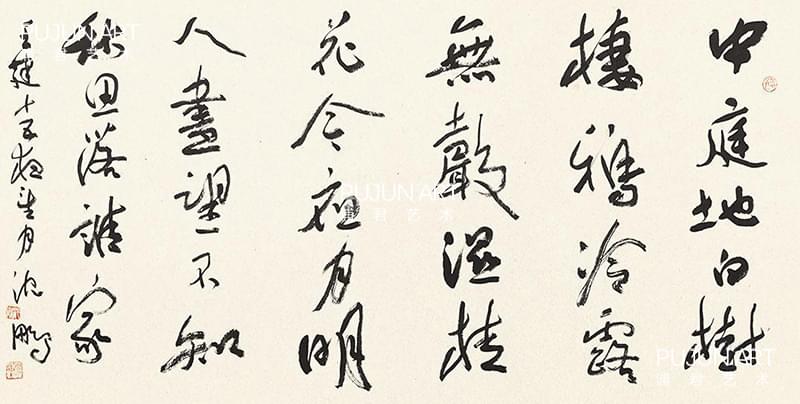 中庭地白樹
棲鴉冷露
無聲濕桂
花今夜月明
人盡望不知
秋思落誰家
王建十五夜望月 沈鵬
PUJUN ART
君艺术
PUJUN ART
君艺术
PUJUN ART
君艺术